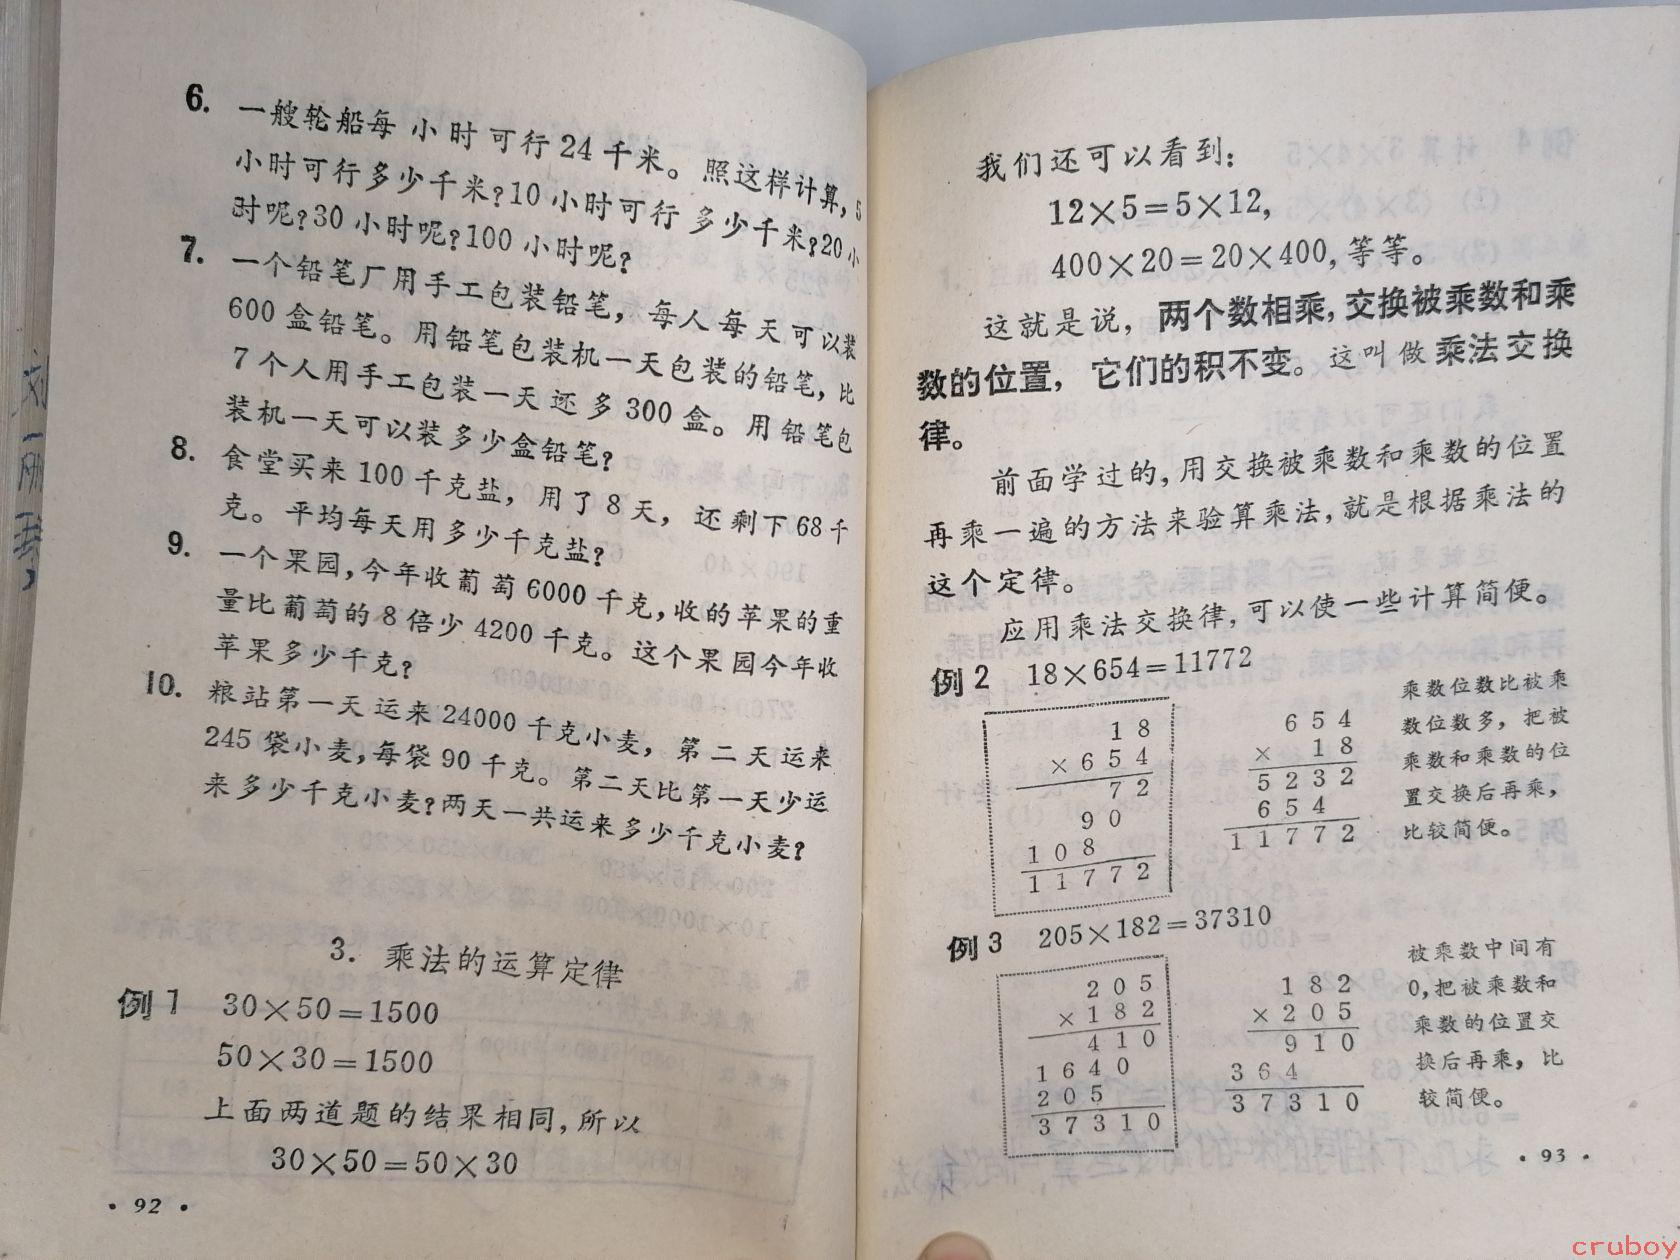 6. 一艘轮船每小时可行24千米。照这样计算,5
小时可行多少千米?10小时可行多少千米?20小
时呢?30小时呢?100小时呢?
7. 一个铅笔厂用手工包装铅笔,每人每天可以装
600盒铅笔。用铅笔包装机一天包装的铅笔,比
7个人用手工包装一天还多300盒。用铅笔包
装机一天可以装多少盒铅笔?
8. 食堂买来100千克盐,用了8天,还剩下68千
克。平均每天用多少千克盐?
9. 一个果园,今年收葡萄6000千克,收的苹果的重
量比葡萄的8倍少4200千克。这个果园今年收
苹果多少千克?
10. 粮站第一天运来24000千克小麦,第二天运来
245袋小麦,每袋90千克。第二天比第一天少运
来多少千克小麦?两天一共运来多少千克小麦?
3. 乘法的运算定律
例1 30×50=1500
50×30=1500
上面两道题的结果相同,所以
30×50=50×30
· 92 ·
我们还可以看到:
12×5=5×12,
400×20=20×400,等等。
这就是说,两个数相乘,交换被乘数和乘
数的位置,它们的积不变。这叫做乘法交换
律。
前面学过的,用交换被乘数和乘数的位置
再乘一遍的方法来验算乘法,就是根据乘法的
这个定律。
应用乘法交换律,可以使一些计算简便。
例2 18×654=11772
18
×654
72
90
108
11772
654
× 18
5232
654
11772
乘数位数比被乘
数位数多,把被
乘数和乘数的位
置交换后再乘,
比较简便。
例3 205×182=37310
205
×182
410
1640
205
37310
182
×205
910
364
37310
被乘数中间有
0,把被乘数和
乘数的位置交
换后再乘,比
较简便。
· 93 ·
cruboy